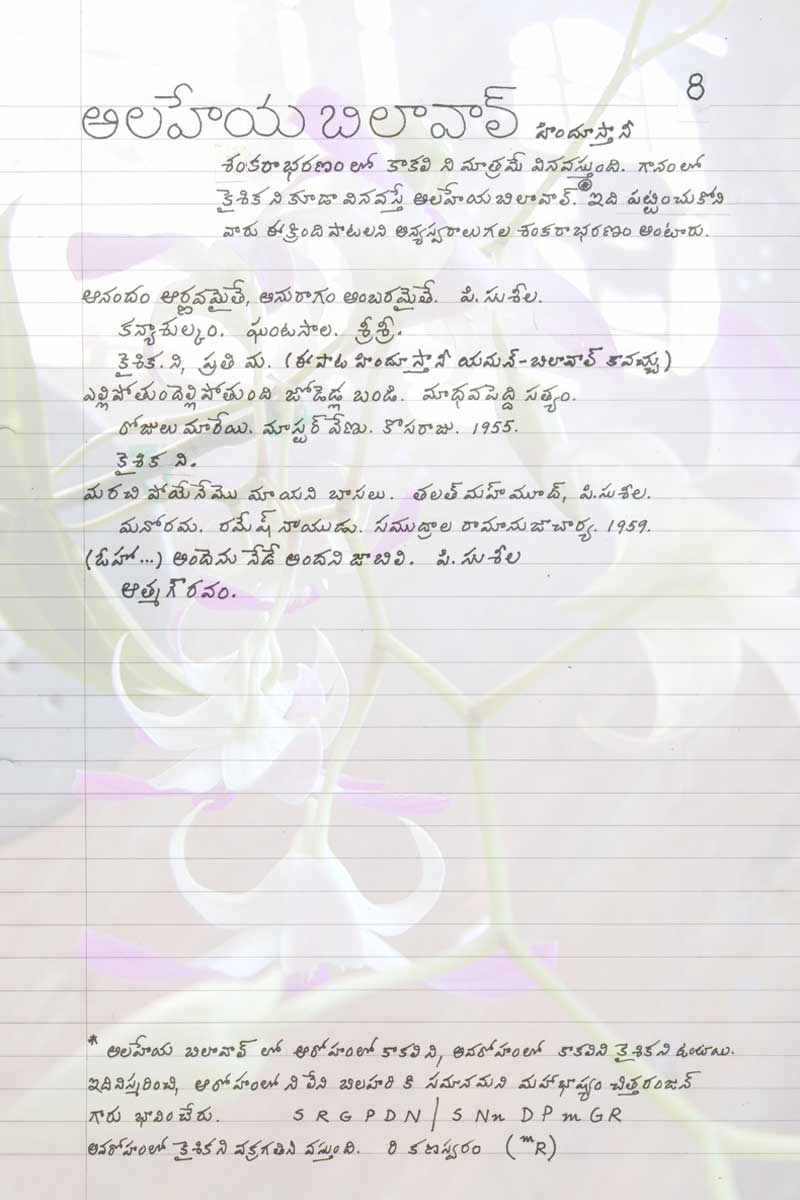 8
అలహేయ బిలావాల్ హిందూస్తానీ
శంకరాభరణంలో కాకలి ని మాత్రమే వినవస్తుంది. గానంలో
కైశిక ని కూడా వినవస్తే అలహేయబిలావాల్.* ఇది పట్టించుకోని
వారు ఈక్రింది పాటలని అన్యస్వరాలుగల శంకరాభరణం అంటారు.
ఆనందం ఆర్ణవమైతే, అనురాగం అంబరమైతే. పి. సుశీల.
కన్యాశుల్కం. ఘంటసాల. శ్రీశ్రీ.
కైశిక. ని, ప్రతి మ. (ఈపాట హిందూస్తానీ యమన్-బిలావాల్ కావచ్చు)
ఎల్లిపోతుందెల్లిపోతుంది జోడెడ్ల బండి. మాధవపెద్ది సత్యం.
రోజులు మారేయి. మాస్టర్ వేణు. కొసరాజు. 1955.
కైశిక ని.
మరచి పోయేనేమొ మాయని బాసలు. తలత్ మహ్మూద్, పి.సుశీల.
మనోరమ. రమేష్ నాయుడు. సముద్రాల రామానుజాచార్య. 1959.
(ఓహో...) అందెను నేడే అందని జాబిలి. పి. సుశీల
ఆత్మగౌరవం.
* అలహేయ బిలావాల్ లో ఆరోహంలో కాకలి ని, అవరోహంలో కాకలిని కైశికని ఉంటాయి.
ఇదివిస్మరించి, ఆరోహంలో ని లేని బిలహరి కి సమానమని మహాభాష్యం చిత్తరంజన్
గారు భావించేరు. S R G P D N | S Nn D P m G R
అవరోహంలో కైశికని వక్రగతిని వస్తుంది. రి కణస్వరం (ᵐR)